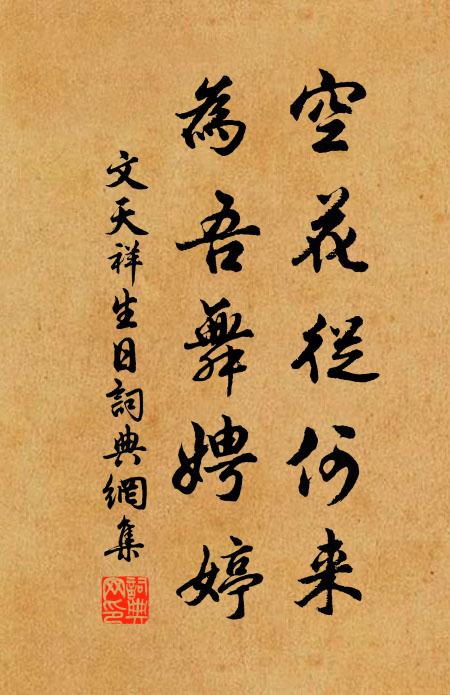 空花從何来
為吾舞娉婷
文天祥生日詞典網集
詞典網印